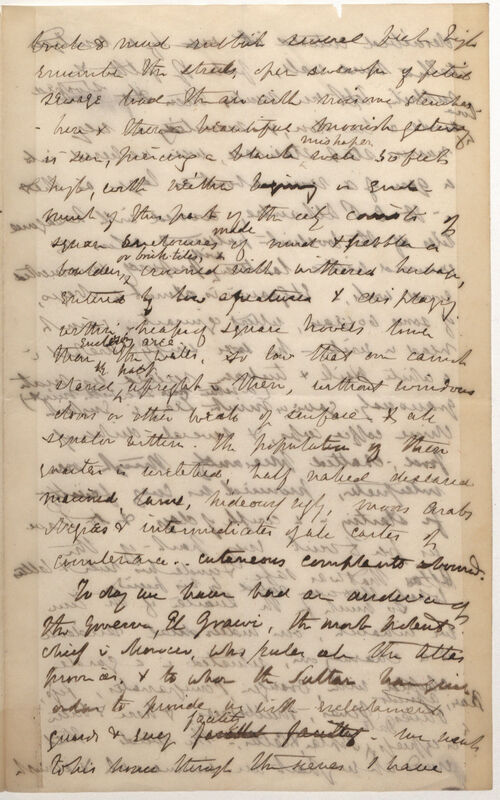 bricks & mud rubbish several feet high
encumber the streets, open swamps of fetid
sewage load the air with noisome stenches
- here & there a beautiful moorish gateway
is seen, piercing a blank misshapen wall 50 feet
high, with neither beginning or end
much of this part of the city consists of
square enclosures made of mud & pebbles or
boulders, or brick tiles, & crowned with withered herbage,
entered by low apertures & displaying
within heaps of square hovels lower
than the enclosing area walls, so low that one cannot
stand upright in them, without windows
doors or other breaks of surface & all
squalor within. The population of these
quarters is wretched, half naked diseased
maimed, lame, hideously ugly, moors arabs
negros & intermediates of all castes of
countenance.. cutaneous complaints abound.
To day we have had an audience of
the governor, El Graoui, the most potent
chief in Marocco, who rules all the Atlas
provinces, & to whom the Sultan has given
orders to provide us with
guards & every facility. We went
to his house through the I have